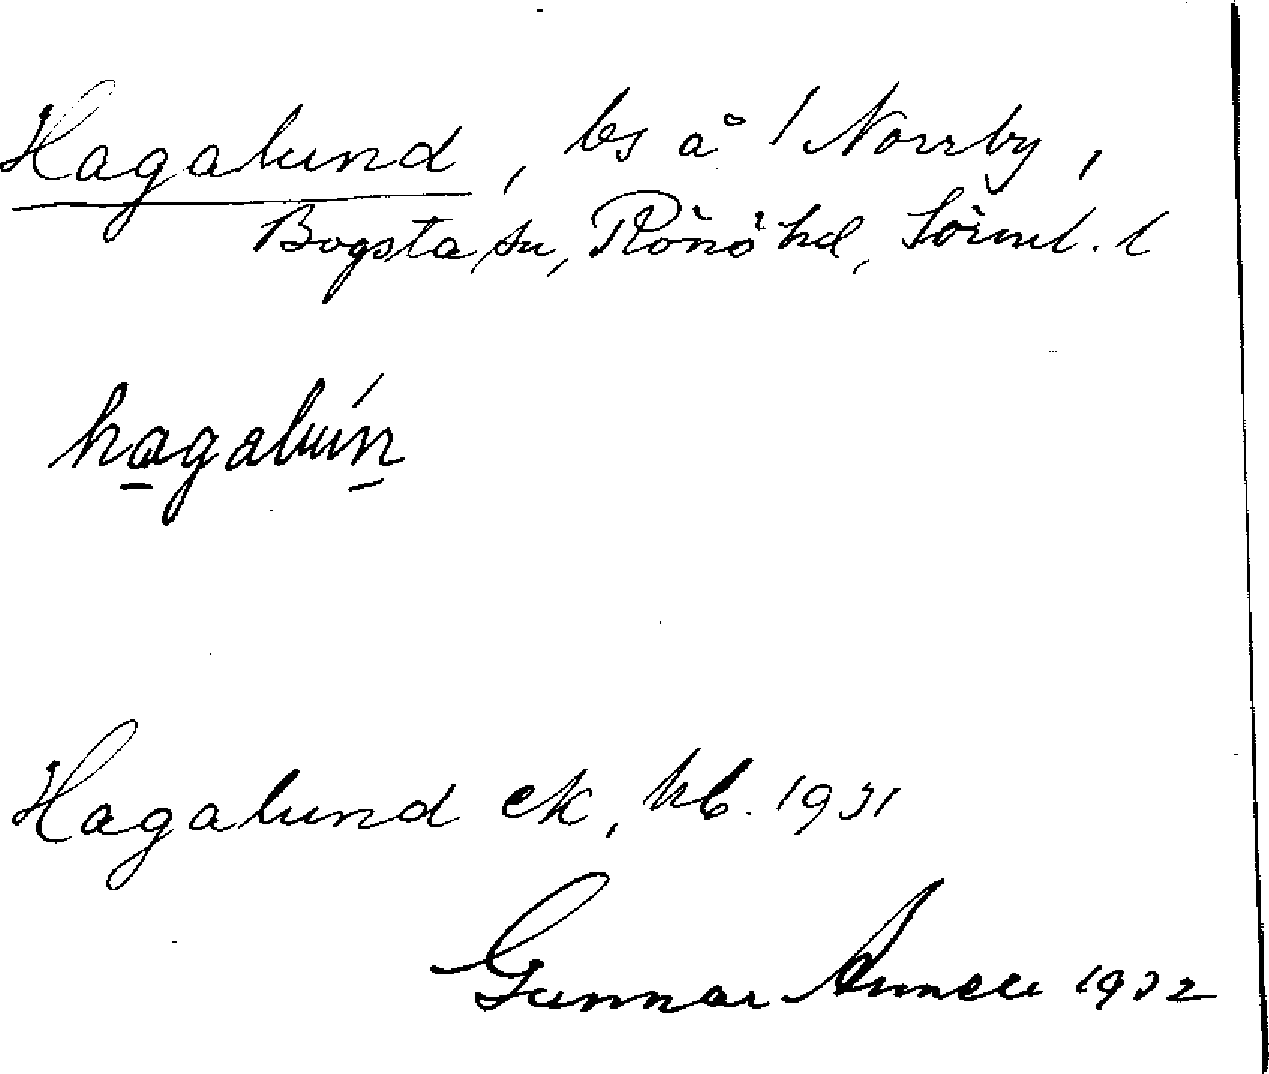 Hagalund, bs å 1 Norrby,
Bogsta sn, Rönö hd, Sörml. l
hagalún
Hagalund ek, hb. 1931
Gunnar 1932